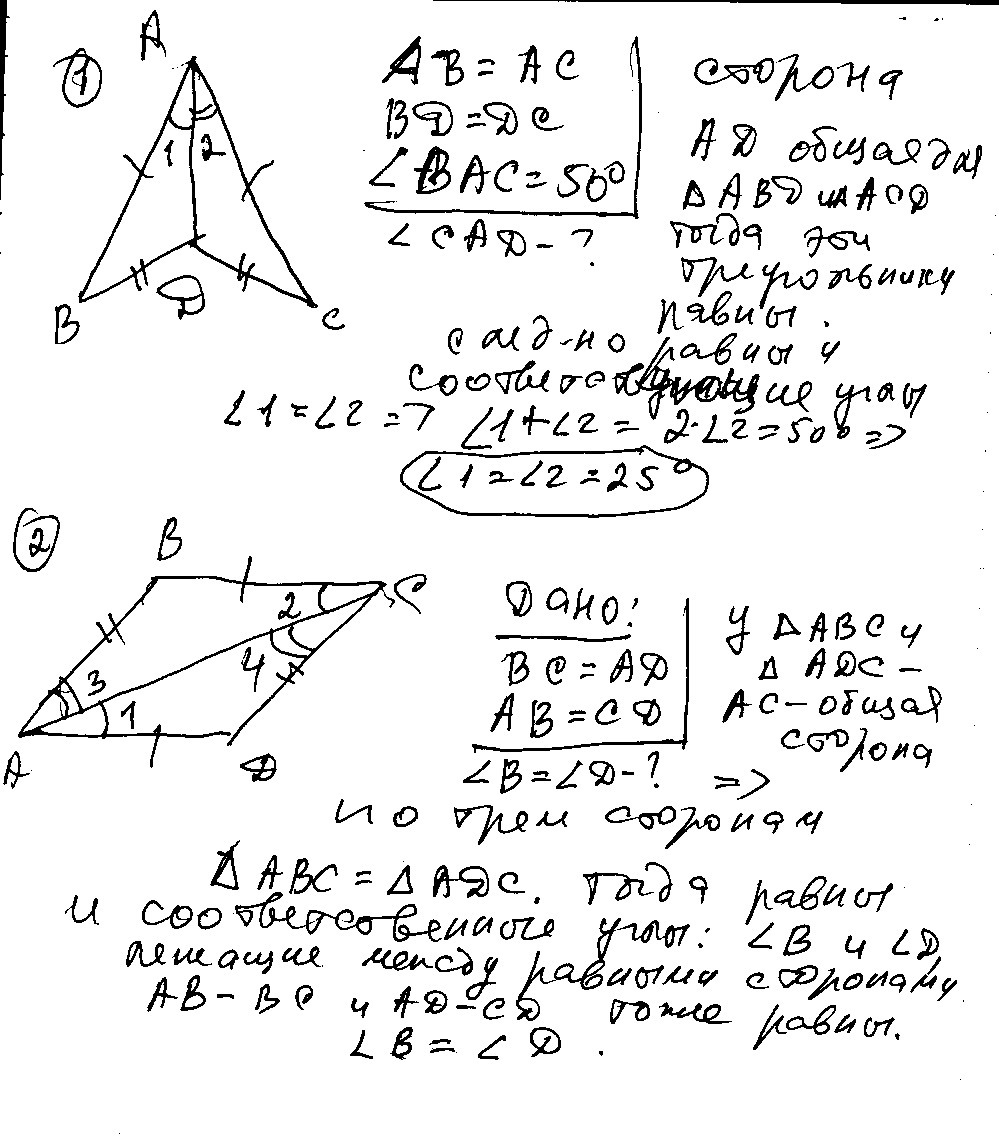 1
A
1 2
B
D
C
AB = AC
BD = DC
∠BAC = 50°
∠CAD - ?
сторона
AD общая для
△ABD и △ACD
тогда эти
треугольники
равны.
след-но равны и
соответствующие углы
∠1 = ∠2 => ∠1 + ∠2 = 2·∠2 = 50° =>
∠1 = ∠2 = 25°
2
B
C
2
4
3
1
A
D
Дано:
BC = AD
AB = CD
∠B = ∠D - ?
У △ABC и
△ ADC -
AC - общая
сторона
=>
по трем сторонам
△ ABC = △ ADC. Тогда равны
и соответственные углы: ∠B и ∠D,
лежащие между равными сторонами
AB - BC и AD - CD тоже равны.
∠B = ∠D.